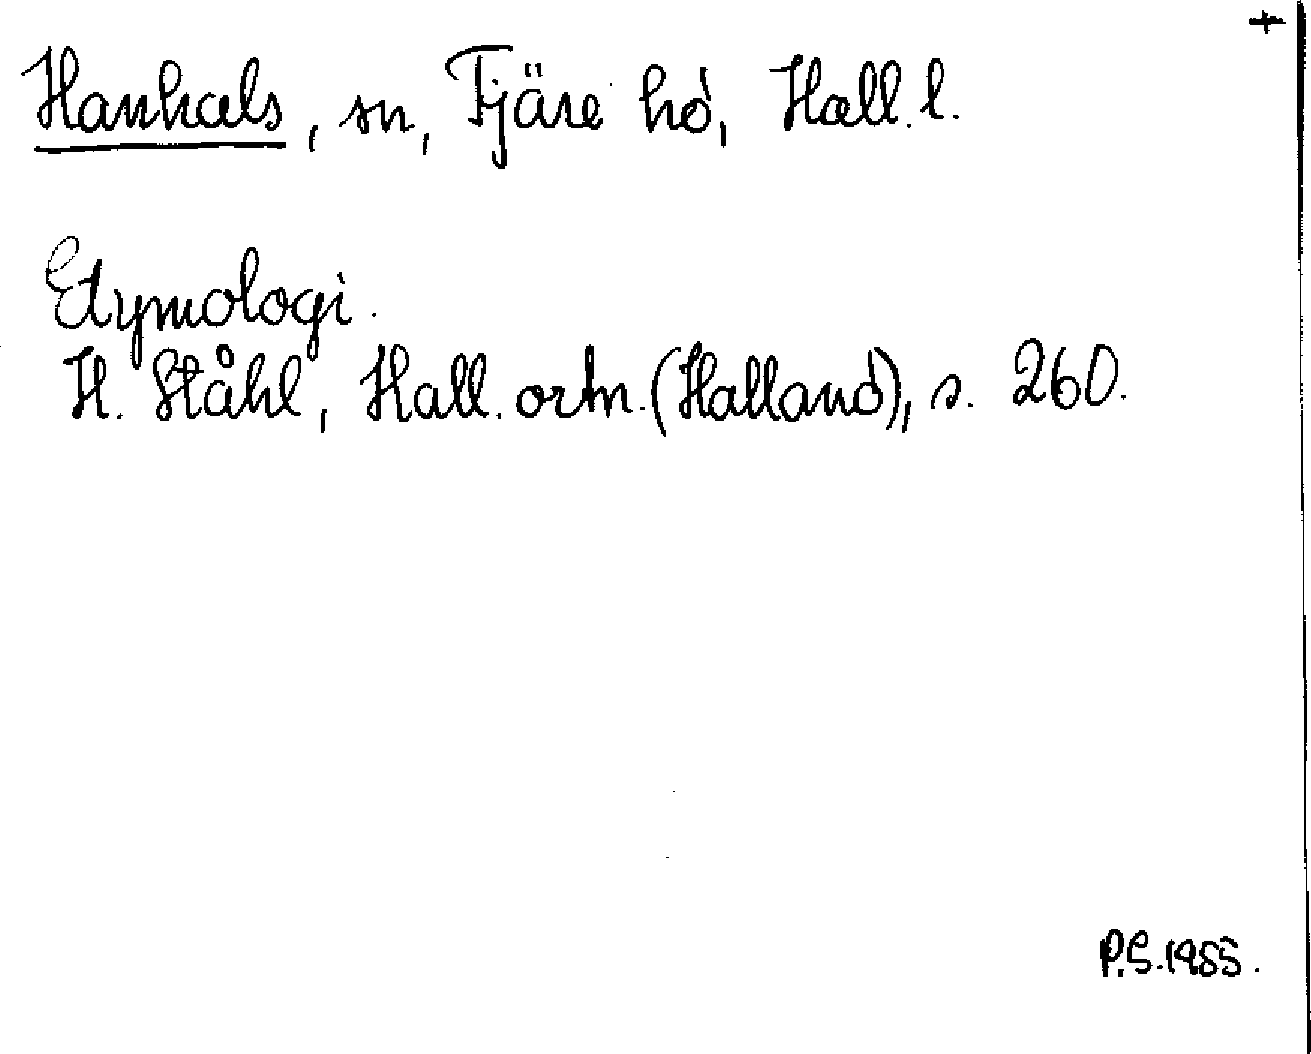 +
Hanhals, sn, Fjäre hd, Hall. l.
Etymologi.
H. Ståhl, Hall. ortn. (Halland), s. 260.
P.S. 1955.